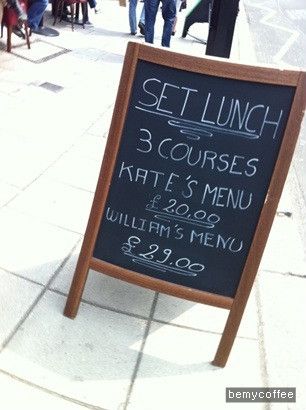 SET LUNCH
3 COURSES
KATE'S MENU
£20.00
WILLIAM'S MENU
£29.00
bemycoffee